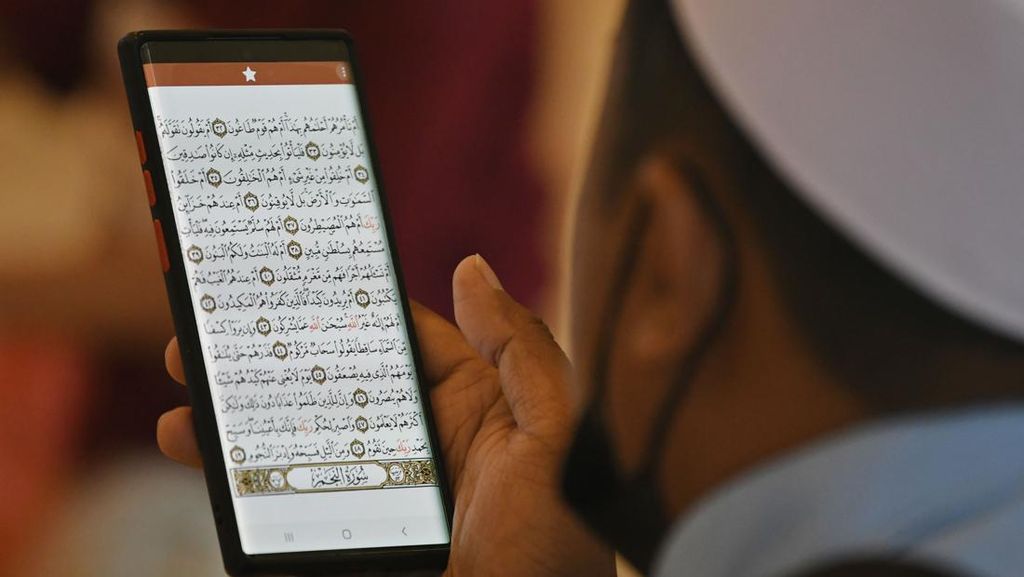 أَمْ تَأْمُرُهُمْ أَحْلَٰمُهُم بِهَٰذَآ أَمْ هُمْ قَوْمٌ طَاغُونَ ٣٢ أَمْ يَقُولُونَ تَقَوَّلَهُۥ
بَل لَّا يُؤْمِنُونَ ٣٣ فَلْيَأْتُوا۟ بِحَدِيثٍ مِّثْلِهِۦٓ إِن كَانُوا۟ صَٰدِقِينَ
٣٤ أَمْ خُلِقُوا۟ مِنْ غَيْرِ شَىْءٍ أَمْ هُمُ ٱلْخَٰلِقُونَ ٣٥ أَمْ خَلَقُوا۟
ٱلسَّمَٰوَٰتِ وَٱلْأَرْضَ بَل لَّا يُوقِنُونَ ٣٦ أَمْ عِندَهُمْ خَزَآئِنُ
رَبِّكَ أَمْ هُمُ ٱلْمُصَۣيْطِرُونَ ٣٧ أَمْ لَهُمْ سُلَّمٌ يَسْتَمِعُونَ فِيهِ فَلْيَأْتِ
مُسْتَمِعُهُم بِسُلْطَٰنٍ مُّبِينٍ ٣٨ أَمْ لَهُ ٱلْبَنَٰتُ وَلَكُمُ ٱلْبَنُونَ ٣٩
أَمْ تَسْـَٔلُهُمْ أَجْرًا فَهُم مِّن مَّغْرَمٍ مُّثْقَلُونَ ٤٠ أَمْ عِندَهُمُ ٱلْغَيْبُ فَهُمْ
يَكْتُبُونَ ٤١ أَمْ يُرِيدُونَ كَيْدًا فَٱلَّذِينَ كَفَرُوا۟ هُمُ ٱلْمَكِيدُونَ ٤٢
أَمْ لَهُمْ إِلَٰهٌ غَيْرُ ٱللَّهِ سُبْحَٰنَ ٱللَّهِ عَمَّا يُشْرِكُونَ ٤٣ وَإِن يَرَوْا۟ كِسْفًا
مِّنَ ٱلسَّمَآءِ سَاقِطًا يَقُولُوا۟ سَحَابٌ مَّرْكُومٌ ٤٤ فَذَرْهُمْ حَتَّىٰ يُلَٰقُوا۟
يَوْمَهُمُ ٱلَّذِى فِيهِ يُصْعَقُونَ ٤٥ يَوْمَ لَا يُغْنِى عَنْهُمْ كَيْدُهُمْ شَيْـًٔا
وَلَا هُمْ يُنصَرُونَ ٤٦ وَإِنَّ لِلَّذِينَ ظَلَمُوا۟ عَذَابًا دُونَ ذَٰلِكَ وَلَٰكِنَّ
أَكْثَرَهُمْ لَا يَعْلَمُونَ ٤٧ وَٱصْبِرْ لِحُكْمِ رَبِّكَ فَإِنَّكَ بِأَعْيُنِنَا وَسَبِّحْ
بِحَمْدِ رَبِّكَ حِينَ تَقُومُ ٤٨ وَمِنَ ٱلَّيْلِ فَسَبِّحْهُ وَإِدْبَٰرَ ٱلنُّجُومِ ٤٩
سُورَةُ ٱلنَّجْمِ